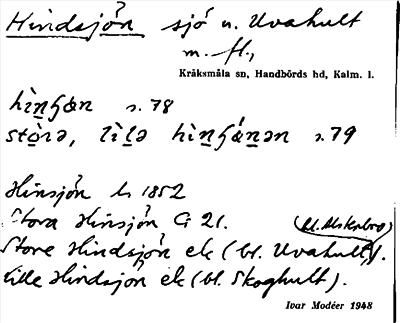 Hindsjön sjö u. Uvahult
m. fl.,
Kråksmåla sn, Handbörds hd, Kalm. l.
s. 78
s. 79
Hinsjön h 1852
Stora Hinsjön G 21.
Store Hindsjön ek (bl. Uvahult).
Lille Hindsjön ek (bl. Skoghult).
Ivar Modéer 1948